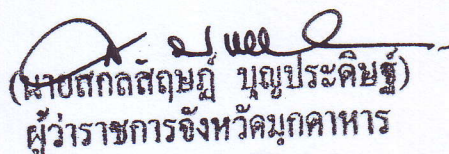 (นายสกลสฤษฏ์ บุญประดิษฐ์)
ผู้ว่าราชการจังหวัดมุกดาหาร